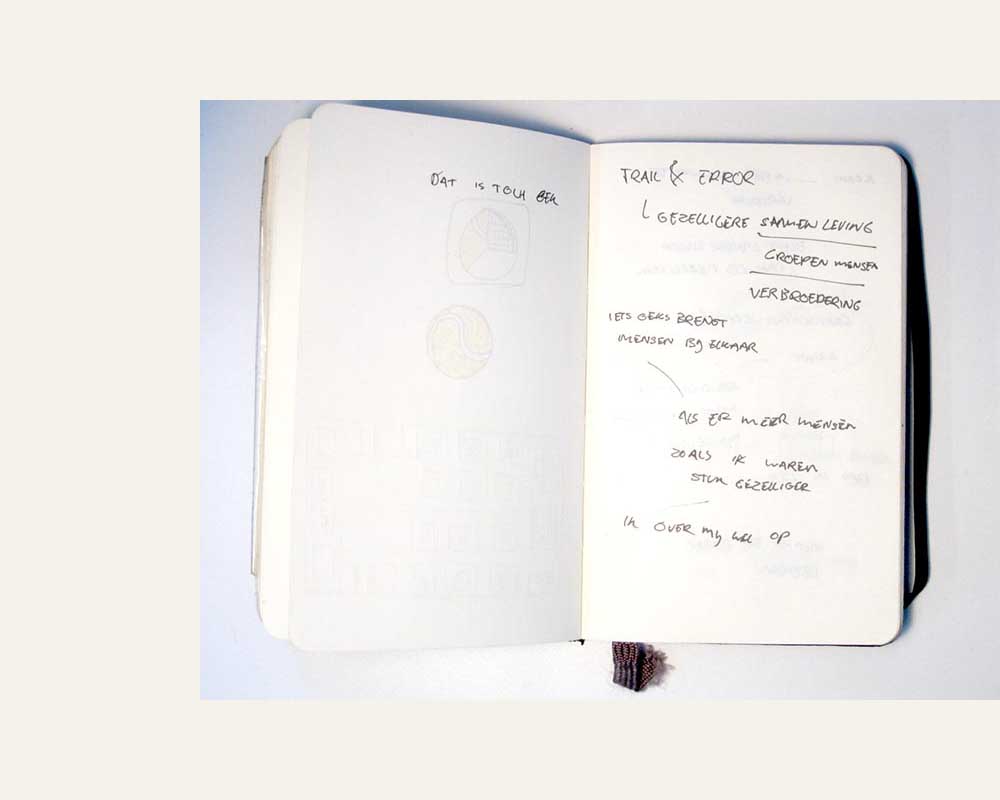 DAT IS TOCH GEK
TRAIL & ERROR
GEZELLIGERE SAMENLEVING
GROEPEN MENSEN
VERBROEDERING
IETS GEKS BRENGT
MENSEN BIJ ELKAAR
ALS ER MEER MENSEN
ZOALS IK WAREN
STUK GEZELLIGER
IK OVER MIJ OP